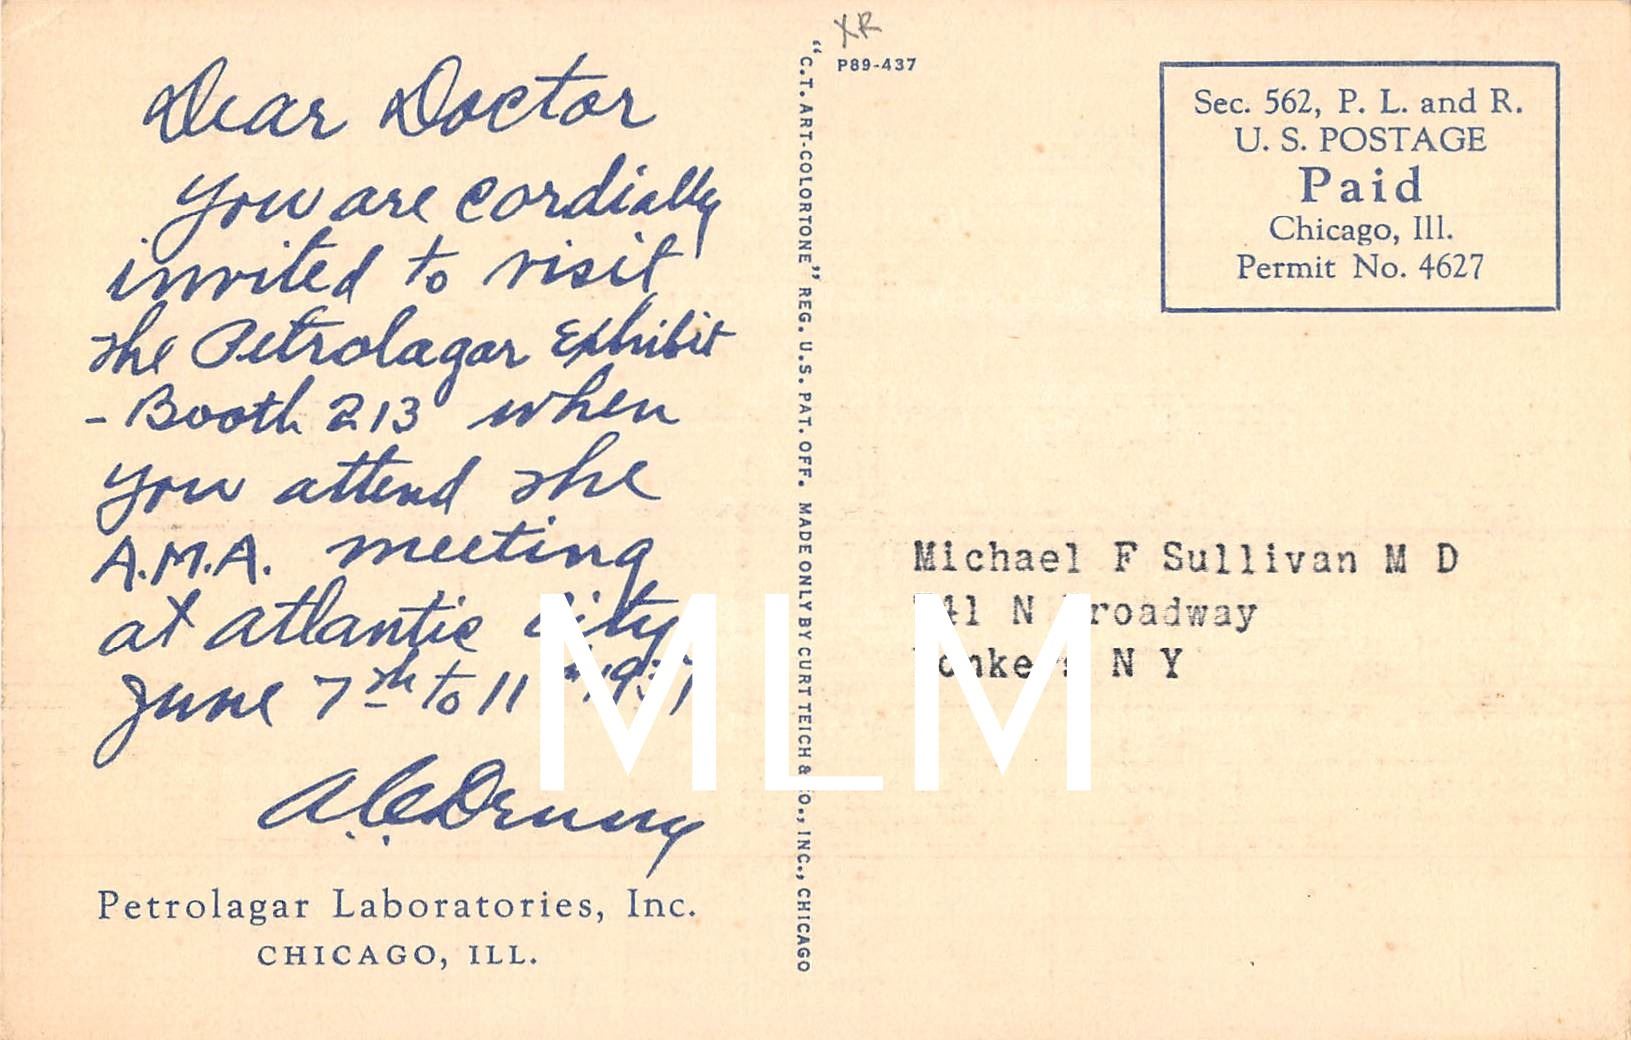 Dear Doctor
You are cordially
invited to visit
the Petrolagar Exhibit
- Booth 213 when
you attend the
A.M.A. meeting
at Atlantic City
June 7th to 11th 1937
Petrolagar Laboratories, Inc.
CHICAGO, ILL.
"C.T. ART-COLORTONE" REG. U.S. PAT. OFF. MADE ONLY BY CURT TEICH & CO., INC., CHICAGO
XR
P89-437
Sec. 562, P. L. and R.
U. S. POSTAGE
Paid
Chicago, Ill.
Permit No. 4627
Michael F Sullivan M D
41 N Broadway
Yonkers N Y
MLM